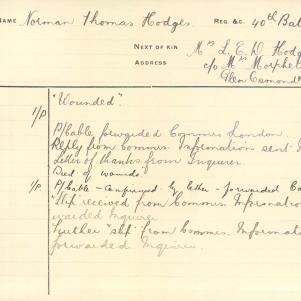 NAME Norman Thomas Hodges. REG. &C. 40th Bat
NEXT OF KIN Mrs L. E. D. Hodg
ADDRESS c/o Mrs Morphet
Glen Osmond
1/P "Wounded".
P/Cable, forwarded Commrs London.
Reply from Commrs. Informations sent I
Letter of thanks from Inquirer.
Died of wounds.
1/P P/Cable - confirmed by letter - forwarded Co
"Slip received from Commrs Informatio
warded Inquirer
Further "slip" from Commrs. Informati
forwarded Inquirer.